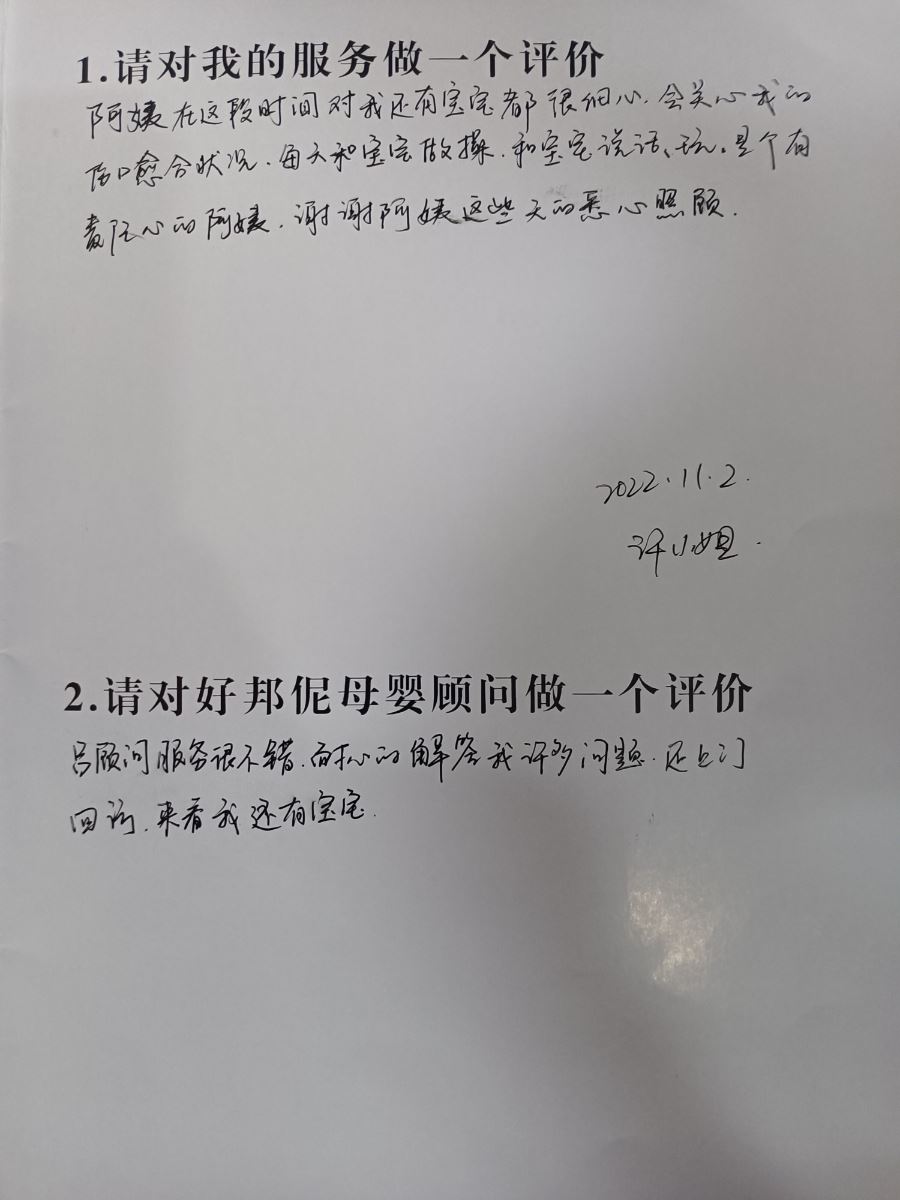 1.请对我的服务做一个评价
阿姨在这段时间对我还有宝宝都很细心.会关心我的
伤口愈合状况.每天和宝宝做操.和宝宝说话、玩.是个有
责任心的阿姨.谢谢阿姨这些天的悉心照顾.
2022.11.2.
许小姐.
2.请对好邦伲母婴顾问做一个评价
吕顾问服务很不错.耐心的解答我许多问题.还上门
回访.来看我还有宝宝.